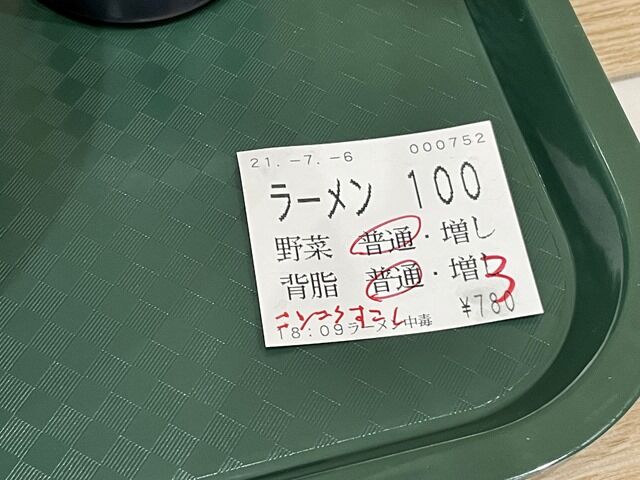 21.-7.-6 000752
ラーメン 100
野菜 普通・増し
背脂 普通・増し 3
¥780
にんにくすこし
18:09ラーメン中毒